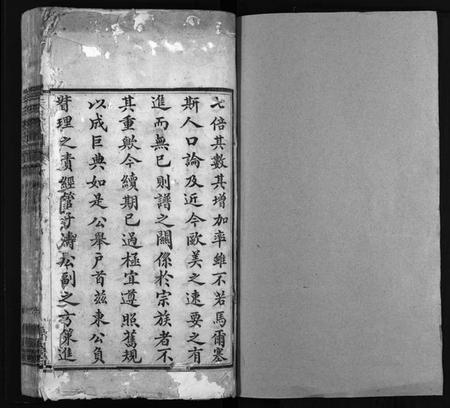 七倍其數其增加率雖不若馬爾塞
斯人口論及近今歐美之速要之有
進而無已則譜之關係於宗族者不
其重歟今續期已過極宜遵照舊規
以成巨典如是公舉戶首茲東公負
督理之責經管籌濤松副之方策進